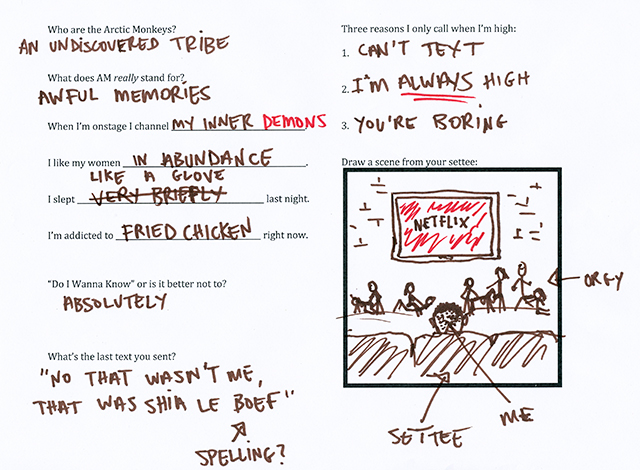 Who are the Arctic Monkeys?
AN UNDISCOVERED TRIBE
What does AM really stand for?
AWFUL MEMORIES
When I'm onstage I channel MY INNER DEMONS
I like my women IN ABUNDANCE.
LIKE A GLOVE
I slept VERY BRIEFLY last night.
I'm addicted to FRIED CHICKEN right now.
"Do I Wanna Know" or is it better not to?
ABSOLUTELY
What's the last text you sent?
"NO THAT WASN'T ME,
THAT WAS SHIA LE BOEF"
SPELLING?
Three reasons I only call when I'm high:
1. CAN'T TEXT
2. I'M ALWAYS HIGH
3. YOU'RE BORING
Draw a scene from your settee:
NETFLIX
ORGY
ME
SETTEE